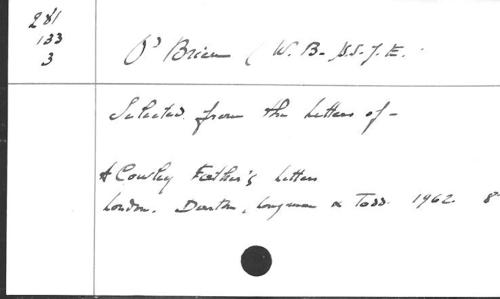 281
133
3
O'Brien (W. B. S.S.J.E.
Selected from the Letters of -
A Cowley Father's Letters
London. Darton, Longman & Todd. 1962. 8º